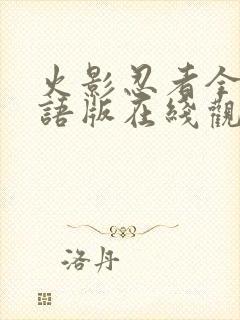 火影忍者全
語版在綫觀
洛丹